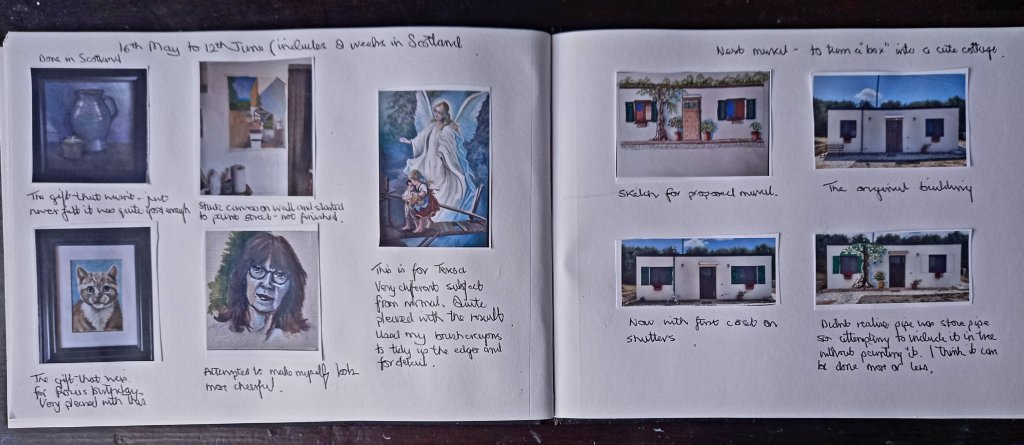 16th May to 12th June (includes 2 weeks in Scotland
Done in Scotland
The gift that wasn't - just
never felt it was quite good enough
Stuck canvas on wall and started
to paint street - not finished.
The gift that was.
for birthday.
Very pleased with this
Attempted to make myself look
more cheerful.
This is for Teresa
Very different subject
from normal. Quite
pleased with the result.
Used my brush crayons
to tidy up the edges and
for detail.
Next mural - to turn a "box" into a cute cottage.
Sketch for proposed mural.
The original building
Now with first coat on
shutters
Didnt realise pipe was stove pipe
so attempting to include it in tree
without painting it. I think it can
be done more or less.